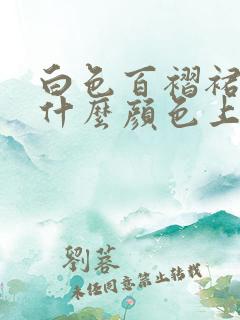 白色百褶裙
什麼顏色上
劉蓉
未經同意禁止轉載